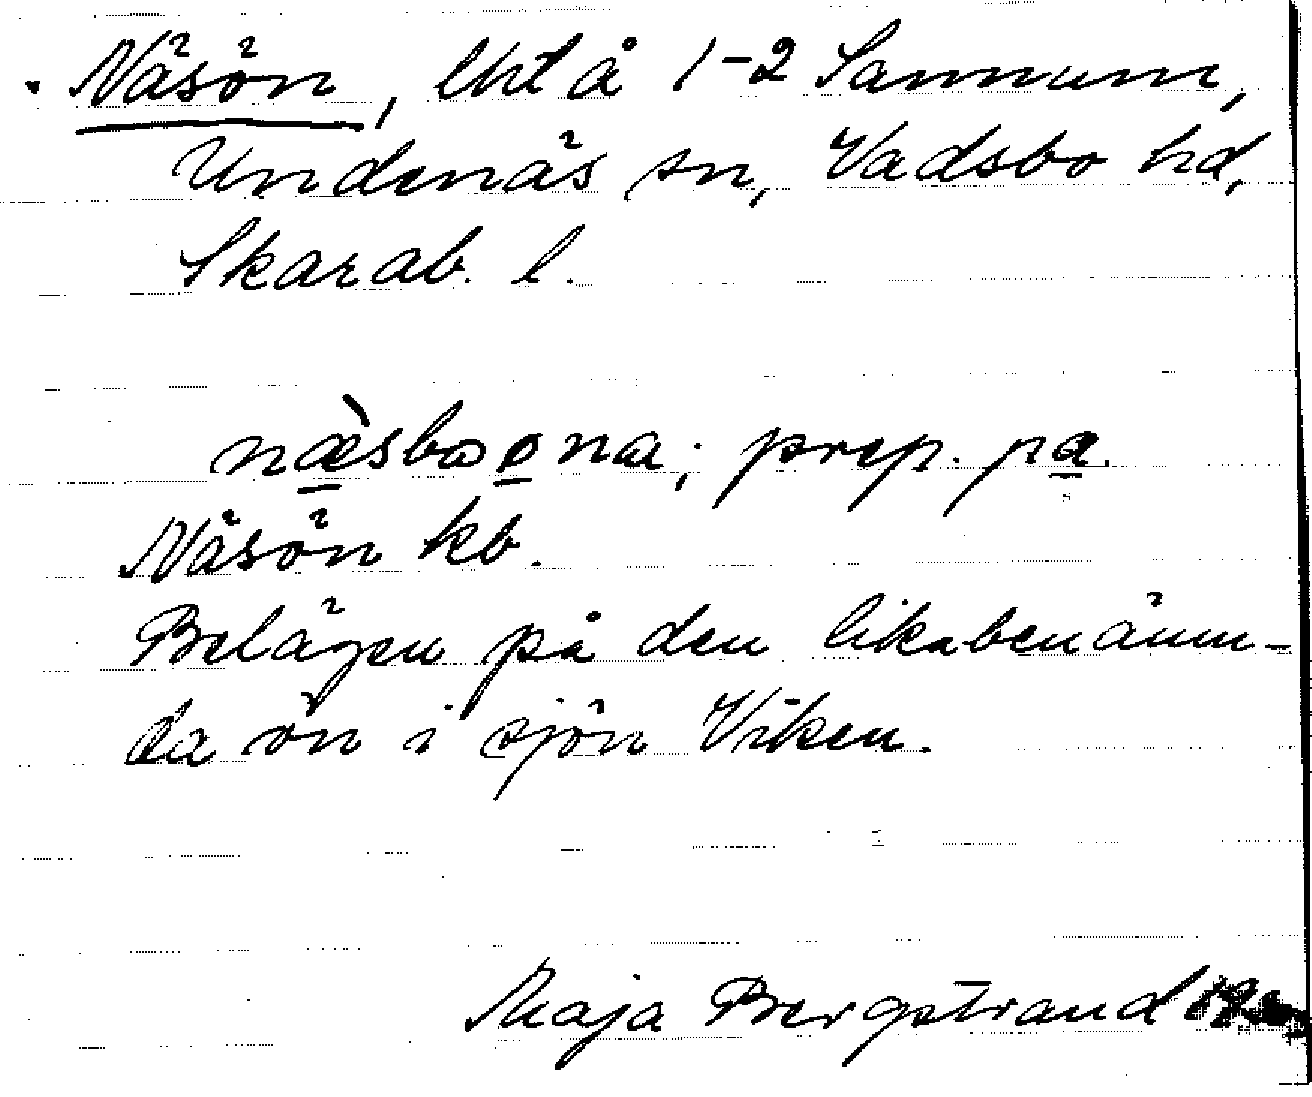 Näsön, lht å 1-2 Sannum,
Undenäs sn, Vadsbo hd,
Skarab. l.
næ̀sbo o na; prep. pa.
Näsön kb.
Belägen på den likabenämn-
da ön i sjön Viken.
Maja Bergstrand